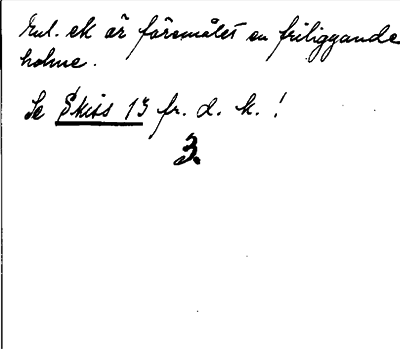 Enl. ek är föremålet en friliggande
holme.
Se Skiss 13 fr. d. k.!
3.